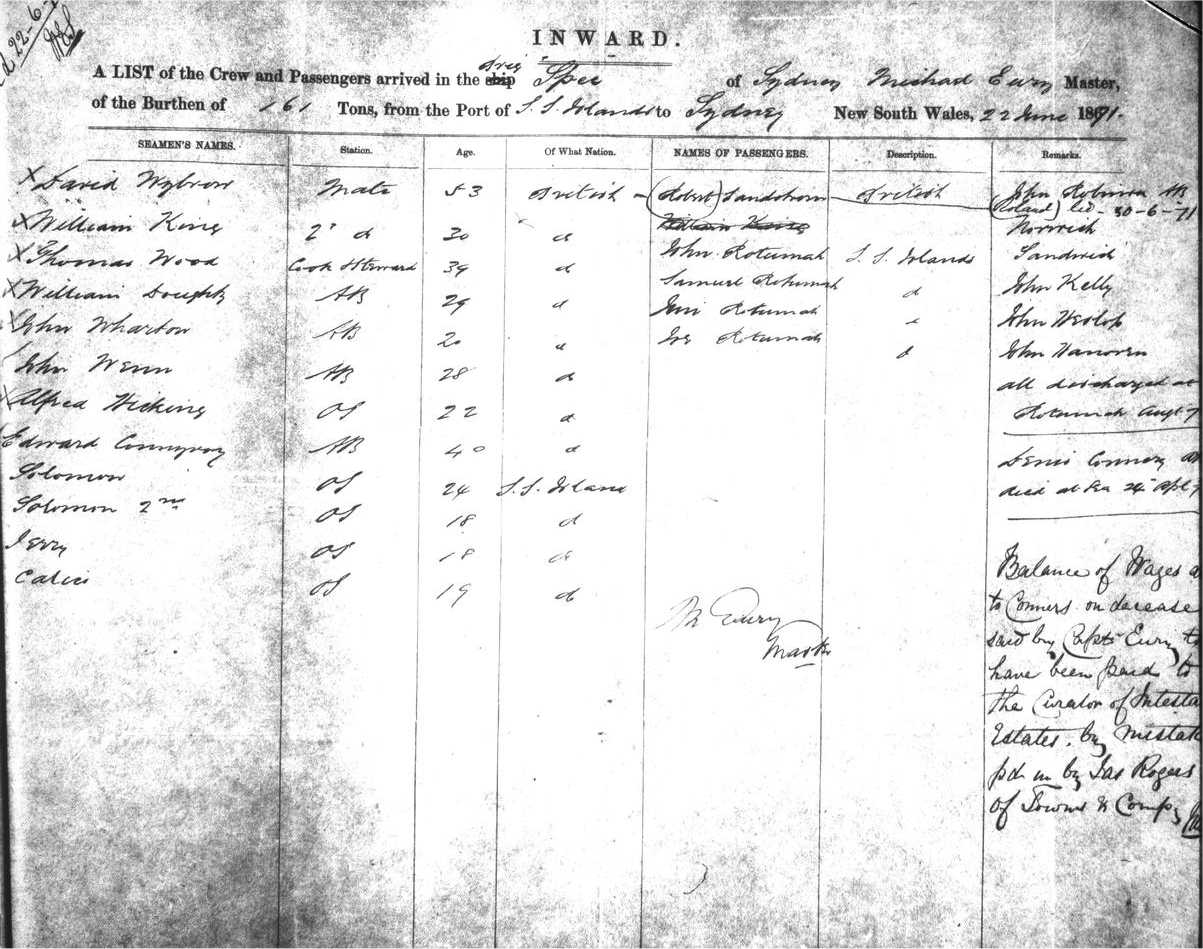 22-6-
INWARD.
A LIST of the Crew and Passengers arrived in the ship Brig Spec of Sydney Michael Eury Master,
of the Burthen of 161 Tons, from the Port of S. S. Islands to Sydney New South Wales, 22 June 1871.
SEAMEN'S NAMES. Station. Age. Of What Nation. NAMES OF PASSENGERS. Description. Remarks.
X David Wybrow Mate 53 British (Robert) Sandstrom British John AB
(Roland) 30-6-71
X William King 2d do 30 do William King Norwich
X Thomas Wood Cook & Steward 39 do John Rotumah S. S. Islands Sandwich
X William Doughty AB 29 do Samuel Rotumah do John Kelly
X John Wharton AB 20 do Jim Rotumah John Heslop
John Wenn AB 28 do Joe Rotumah do John Hanoven
X Alfred Hicking OS 22 do all discharged at
Rotumah Augt 7
Edward AB 40 do
Solomon OS 24 S. S. Island Denis Connery
Solomon 2nd OS 18 do died at Sea 24 Apl
Jerry OS 18 do
OS 19 do
M Eury
Master
Balance of Wages
to Conners on decease
said by Capt Eury to
have been paid to
the Curator of Intesta
Estates. by mistak
pd in by Jas Rogers
of Towns & Compy